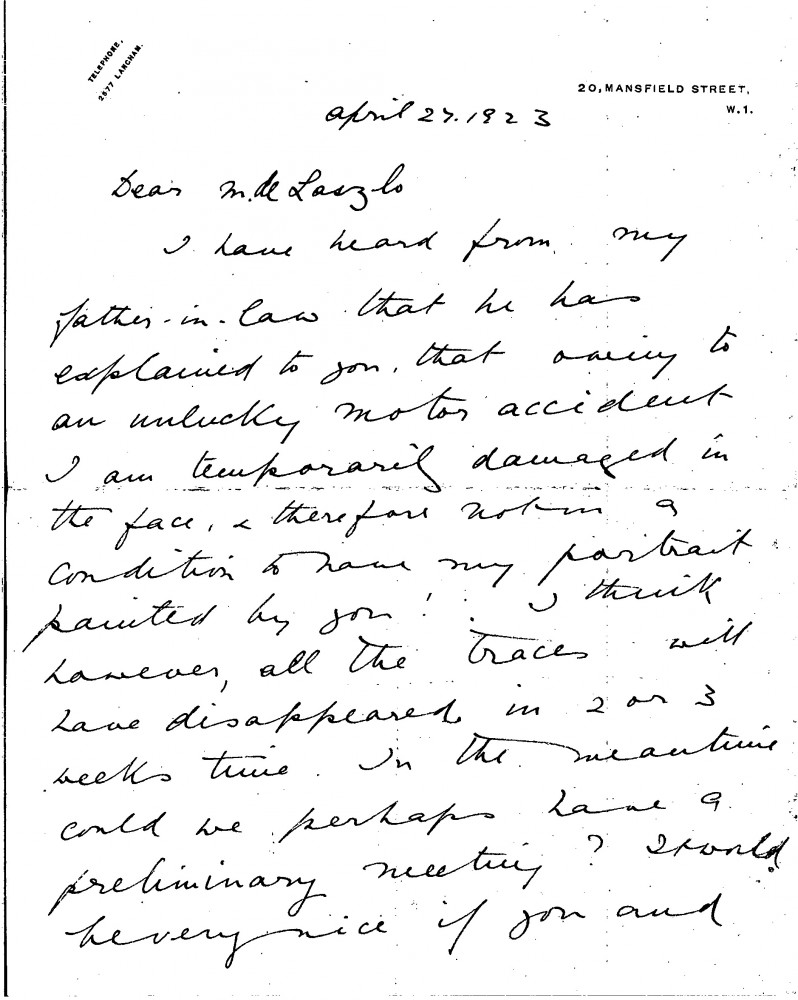 TELEPHONE,
2577 LANGHAM.
20, MANSFIELD STREET,
W.1.
April 27. 1923
Dear M. de Laszlo
I have heard from my
father-in-law that he has
explained to you, that owing to
an unlucky motor accident
I am temporarily damaged in
the face, & therefore not in a
condition to have my portrait
painted by you! I think
however, all the traces will
have disappeared in 2 or 3
weeks time. In the meantime
could we perhaps have a
preliminary meeting? It would
be very nice if you and